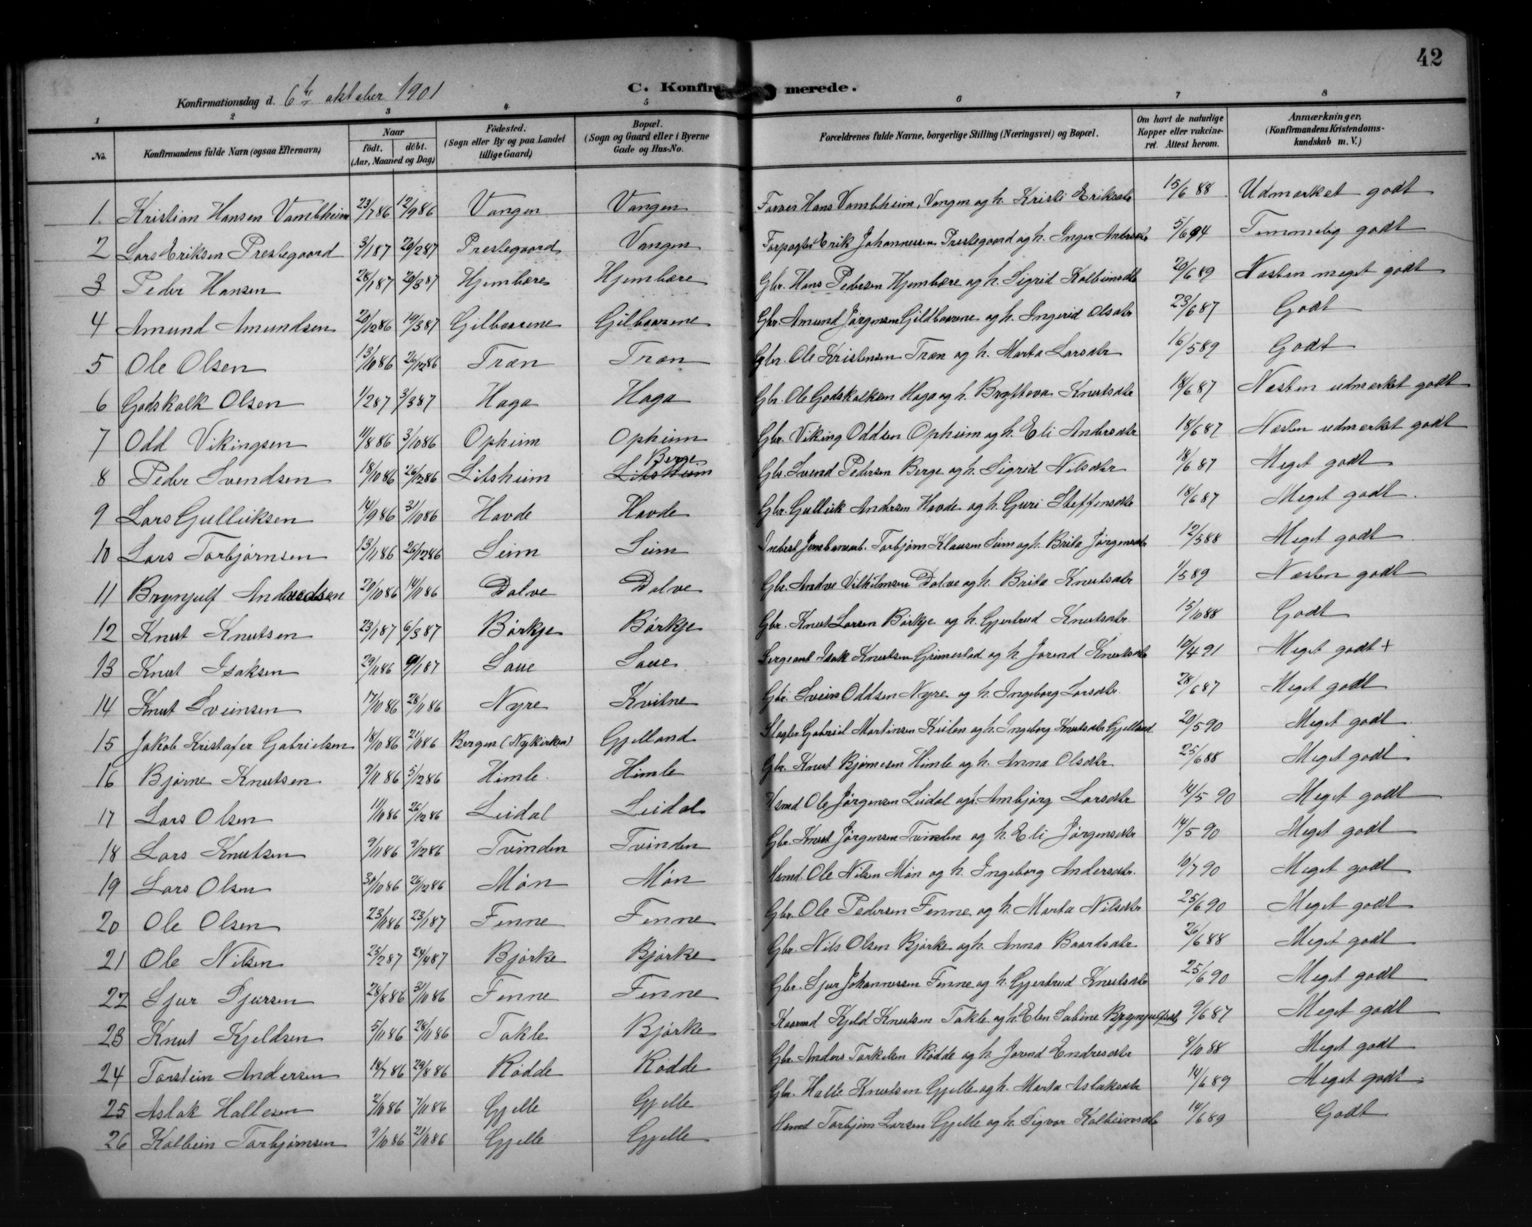 42
C. Konfirmerede.
Konfirmationsdag d. 6te oktober 1901
1 2 3 4 5 6 7 8
No. Konfirmandens fulde Navn (ogsaa Efternavn) Naar födt. döbt. (Aar, Maaned og Dag) Födested. (Sogn eller By og paa Landet tillige Gaard) Bopæl. (Sogn og Gaard eller i Byerne Gade og Hus-No. Forældrenes fulde Navne, borgerlige Stilling (Næringsvei) og Bopæl. Om havt de naturlige Kopper eller vakcineret. Attest herom. Anmærkninger. (Konfirmandens Kristendomskundskab m. V.)
1 Kristian Hansen Vambheim 23/7 86 12/9 86 Vangen Vangen Hans Vambheim, Vangen og h. Kristi Eriksdtr 15/6 88 Udmerket godt
2 Lars Eriksen Prestegaard 3/1 87 20/2 87 Prestegaard Vangen Forpagter Erik Johannessen Prestegaard og h. Inger Andersdtr 5/6 94 Temmelig godt
3 Peder Hansen 28/1 87 20/3 87 Hjembære Hjembære Gbr. Hans Pedersen Hjembære og h. Sigrid Kolbeinsdtr 20/6 89 Næsten meget godt
4 Amund Amundsen 20/12 86 Gilbaarene Gilbaarene Gbr. Amund Jörgensen Gildbaarene og h. Ingerid Olsdtr 23/6 87 Godt
5 Ole Olsen 13/10 86 26/12 86 Træn Træn Gbr. Ole Kristensen Træn og h. Marta Larsdtr 16/5 89 Godt
6 Godskalk Olsen 1/2 87 3/3 87 Haga Haga Gbr. Ole Godskalksen Haga og h. Brytteva Knutsdtr 18/6 87 Næsten udmerket godt
7 Odd Vikingsen 11/8 86 3/10 86 Opheim Opheim Gbr. Viking Oddsen Opheim og h. Eli Andersdtr 18/6 87 Næsten udmerket godt
8 Peder Svendsen 18/10 86 26/12 86 Litsheim Berge Litsheim Gbr. Svend Pedersen Berge og h. Sigrid Nilsdtr 18/6 87 Meget godt
9 Lars Gulliksen 14/9 86 31/10 86 Havde Havde Gbr. Gullik Andersen Havde og h. Guri Steffensdtr 18/6 87 Meget godt.
10 Lars Torbjörnsen 13/11 86 25/12 86 Seim Seim Torbjörn Klausen Seim og h. Brita Jörgensdtr 12/5 88 Meget godt
11 Brynjulf Andvedsen 20/10 86 14/10 86 Dolve Dolve Gbr. Andve Vilhelmsen Dolve og h. Brita Knutsdtr 1/5 89 Næsten godt
12 Knut Knutsen 23/1 87 6/3 87 Börkje Börkje Gbr. Knut Larsen Börkje og h. Gjertrud Knutsdtr 15/10 88 Godt
13 Knut Isaksen 29/11 86 9/1 87 Saue Saue Sergeant Isak Knutsen Grimestad og h. Jorend Knutsdtr 10/4 91 Meget godt +
14 Knut Sveinsen 17/10 86 28/11 86 Nyre Kvitne Gbr. Svein Oddsen Nyre og h. Ingeborg Larsdtr. 28/6 87 Meget godt
15 Jakob Kristofer Gabrielsen 18/10 86 21/11 86 Bergen (Nykirken) Gjelland Slagter Gabriel Martinsen og h. Ingeborg Knutsdtr Gjelland 20/5 90 Meget godt
16 Bjørne Knutsen 9/11 86 5/12 86 Himle. Himle Gbr. Knut Bjørnesen Himle og h. Anna Olsdtr 25/6 88 Meget godt
17 Lars Olsen 11/11 86 26/12 86 Leidal Leidal Hsmd Ole Jörgensen Leidal og h. Ambjørg Larsdtr 14/5 90 Meget godt
18 Lars Knutsen 9/11 86 9/12 86 Tvinden Tvinden Gbr. Knut Jörgensen Tvinden og h. Eli Jörgensdtr 14/5 90 Meget godt
19 Lars Olsen 30/10 86 26/12 86 Møn Møn Hsmd. Ole Nilsen Møn og h. Ingeborg Andersdtr. 10/7 90 Meget godt
20 Ole Olsen 23/11 86 23/1 87 Fenne Fenne Gbr. Ole Pedersen Fenne og h. Marta Nilsdtr 25/6 90 Meget godt
21 Ole Nilsen 25/2 87 24/4 87 Bjørke Bjørke Gbr. Nils Olsen Bjørke og h. Anna Baardsdtr 26/6 88 Meget godt
22 Sjur Sjursen 28/8 86 31/10 86 Fenne Fenne Gbr. Sjur Johannessen Fenne og h. Gjertrud Knutsdtr 25/6 90 Meget godt
23 Knut Kjeldsen 5/10 86 24/10 86 Takle Bjørke Kjeld Knutsen Takle og h. Elen Sabine Brynjulfsdtr 9/6 87 Meget godt
24 Torstein Andersen 14/7 86 29/8 86 Rödde Rödde Gbr. Anders Torkelsen Rödde og h. Jorend Endresdtr 8/10 88 Meget godt
25 Aslak Hallesen 2/10 86 7/11 86 Gjelle Gjelle Gbr. Halle Knutsen Gjelle og h. Marta Aslaksdtr 14/6 89 Meget godt.
26 Kolbein Torbjørnsen 9/10 86 21/11 86 Gjelle Gjelle Hsmd Torbjørn Larsen Gjelle og h. Signor Kolbeinsdtr 14/6 89 Godt